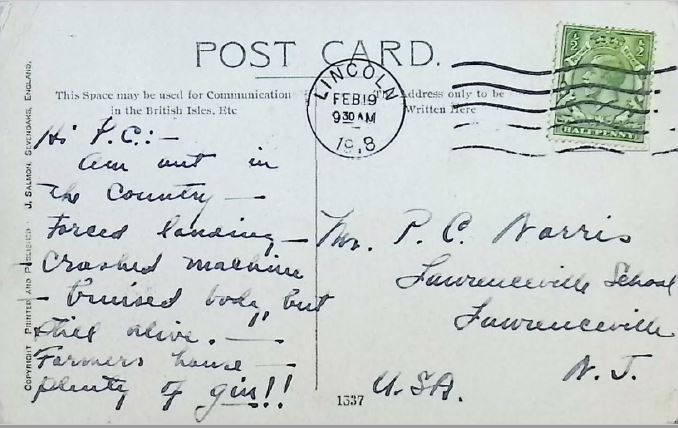 POST CARD.
This Space may be used for Communication
in the British Isles, Etc
The Address only to be
Written Here
LINCOLN
FEB 19
9 30 AM
1918
½ ½
HALFPENNY
COPYRIGHT PRINTED AND PUBLISHED J. SALMON, SEVENOAKS, ENGLAND.
Hi P.C.:—
Am out in
the country —
Forced landing —
Crashed machine
- bruised body but
still alive. —
Farmers house —
plenty of gin!!
Mr. P. C. Norris
Lawrenceville School
Lawrenceville
N. J.
U.S.A.
1537